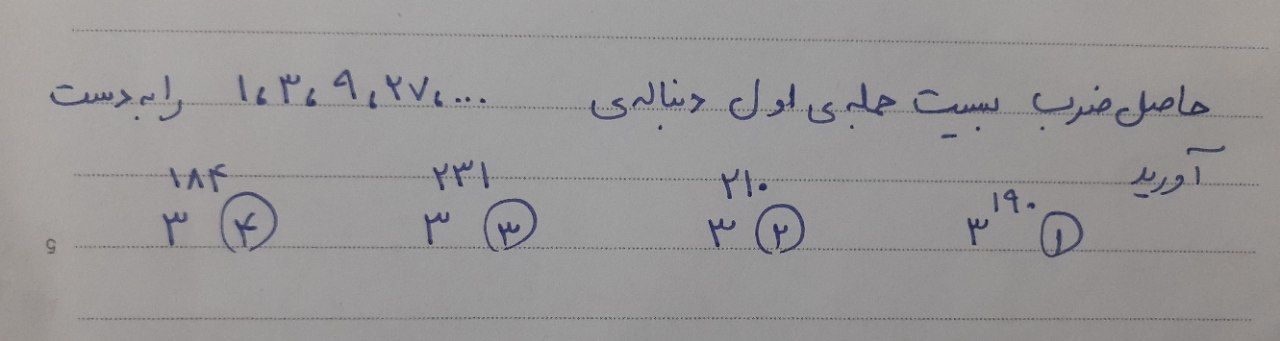 حاصل ضرب بیست جمله ی اول دنباله ی ۱، ۳، ۹، ۲۷، ... را به دست
آورید
۱) ۳^۱۹۰ ۲) ۳^۲۱۰ ۳) ۳^۲۳۱ ۴) ۳^۱۸۴
5